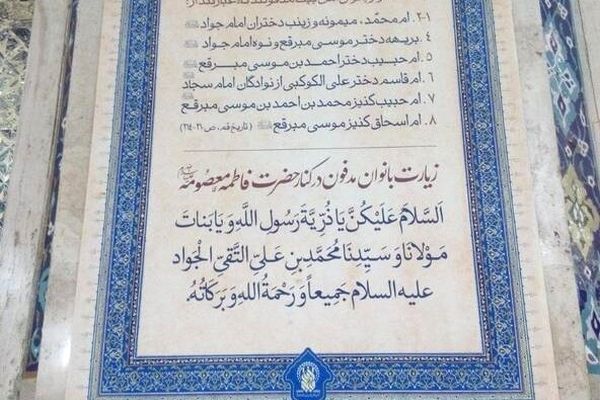 ۱-۲. ام محمّد، میمونه و زینب دختران امام جواد
۴. بریهه دختر موسی مبرقع و نوه امام جواد
۵. ام حبیب دختر احمد بن موسی مبرقع
۶. ام قاسم دختر علی الکوکبی از نوادگان امام سجاد
۷. ام حبیب کنیز محمد بن احمد بن موسی مبرقع
۸. ام اسحاق کنیز موسی مبرقع (تاریخ قم، ص ۲۱-۲۱۴)
زیارت بانوان مدفون در کنار حضرت فاطمه معصومه
اَلسَّلامُ عَلَیْکُنَّ یا ذُرِّیَّةَ رَسُولِ اللّهِ وَ یا بَناتَ
مَوْلانا وَ سَیِّدِنا مُحَمَّدِ بنِ عَلیٍّ التَّقیِّ الْجَواد
علیه السلام جَمیعاً وَ رَحْمَةُ اللهِ وَ بَرَکاتُهُ.